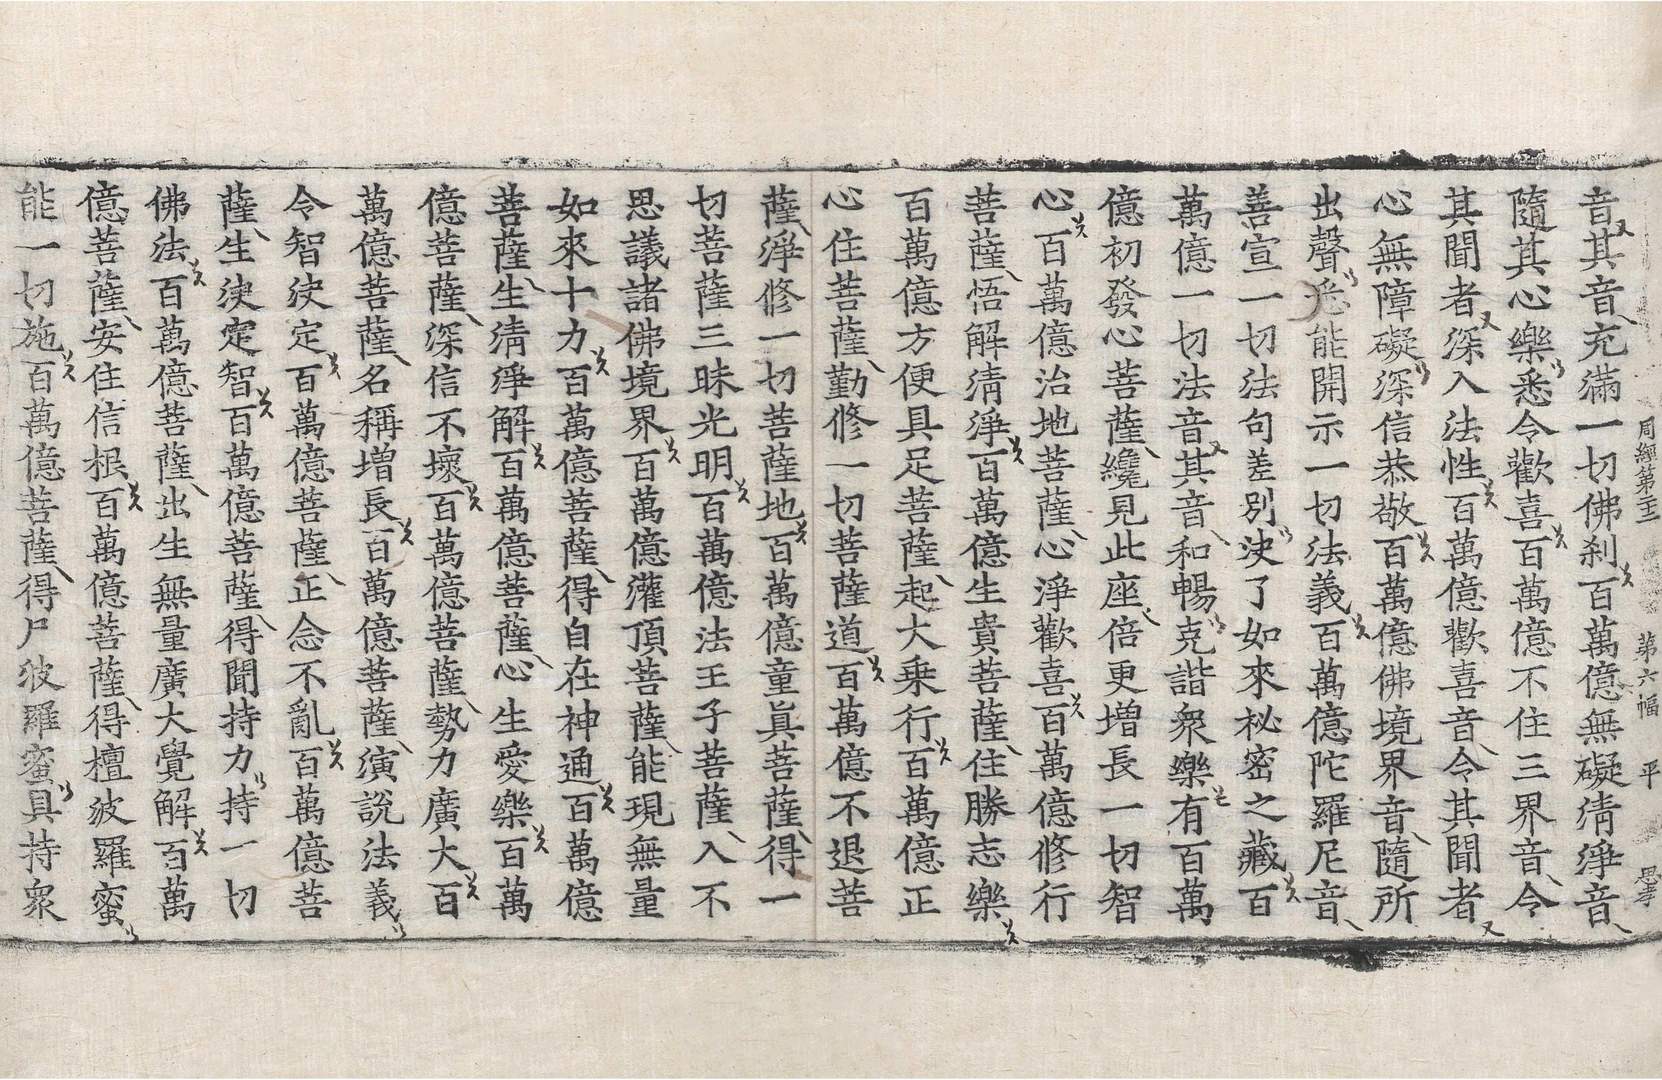 周經第二十二　第六幅　平
音其音充滿一切佛刹百萬億無礙清淨音
隨其心樂悉令歡喜百萬億不住三界音令
其聞者深入法性百萬億歡喜音令其聞者
心無障礙深信恭敬百萬億佛境界音隨所
出聲悉能開示一切法義百萬億陀羅尼音
善宣一切法句差別決了如來祕密之藏百
萬億一切法音其音和暢克諧衆樂有百萬
億初發心菩薩纔見此座倍更增長一切智
心百萬億治地菩薩心淨歡喜百萬億修行
菩薩悟解清淨百萬億生貴菩薩住勝志樂
百萬億方便具足菩薩起大乗行百萬億正
心住菩薩勤修一切菩薩道百萬億不退菩
薩淨修一切菩薩地百萬億童眞菩薩得一
切菩薩三昧光明百萬億法王子菩薩入不
思議諸佛境界百萬億灌頂菩薩能現無量
如來十力百萬億菩薩得自在神通百萬億
菩薩生清淨解百萬億菩薩心生愛樂百萬
億菩薩深信不壞百萬億菩薩勢力廣大百
萬億菩薩名稱增長百萬億菩薩演說法義
令智決定百萬億菩薩正念不亂百萬億菩
薩生決定智百萬億菩薩得聞持力持一切
佛法百萬億菩薩出生無量廣大覺解百萬
億菩薩安住信根百萬億菩薩得檀波羅蜜
能一切施百萬億菩薩得尸波羅蜜具持衆